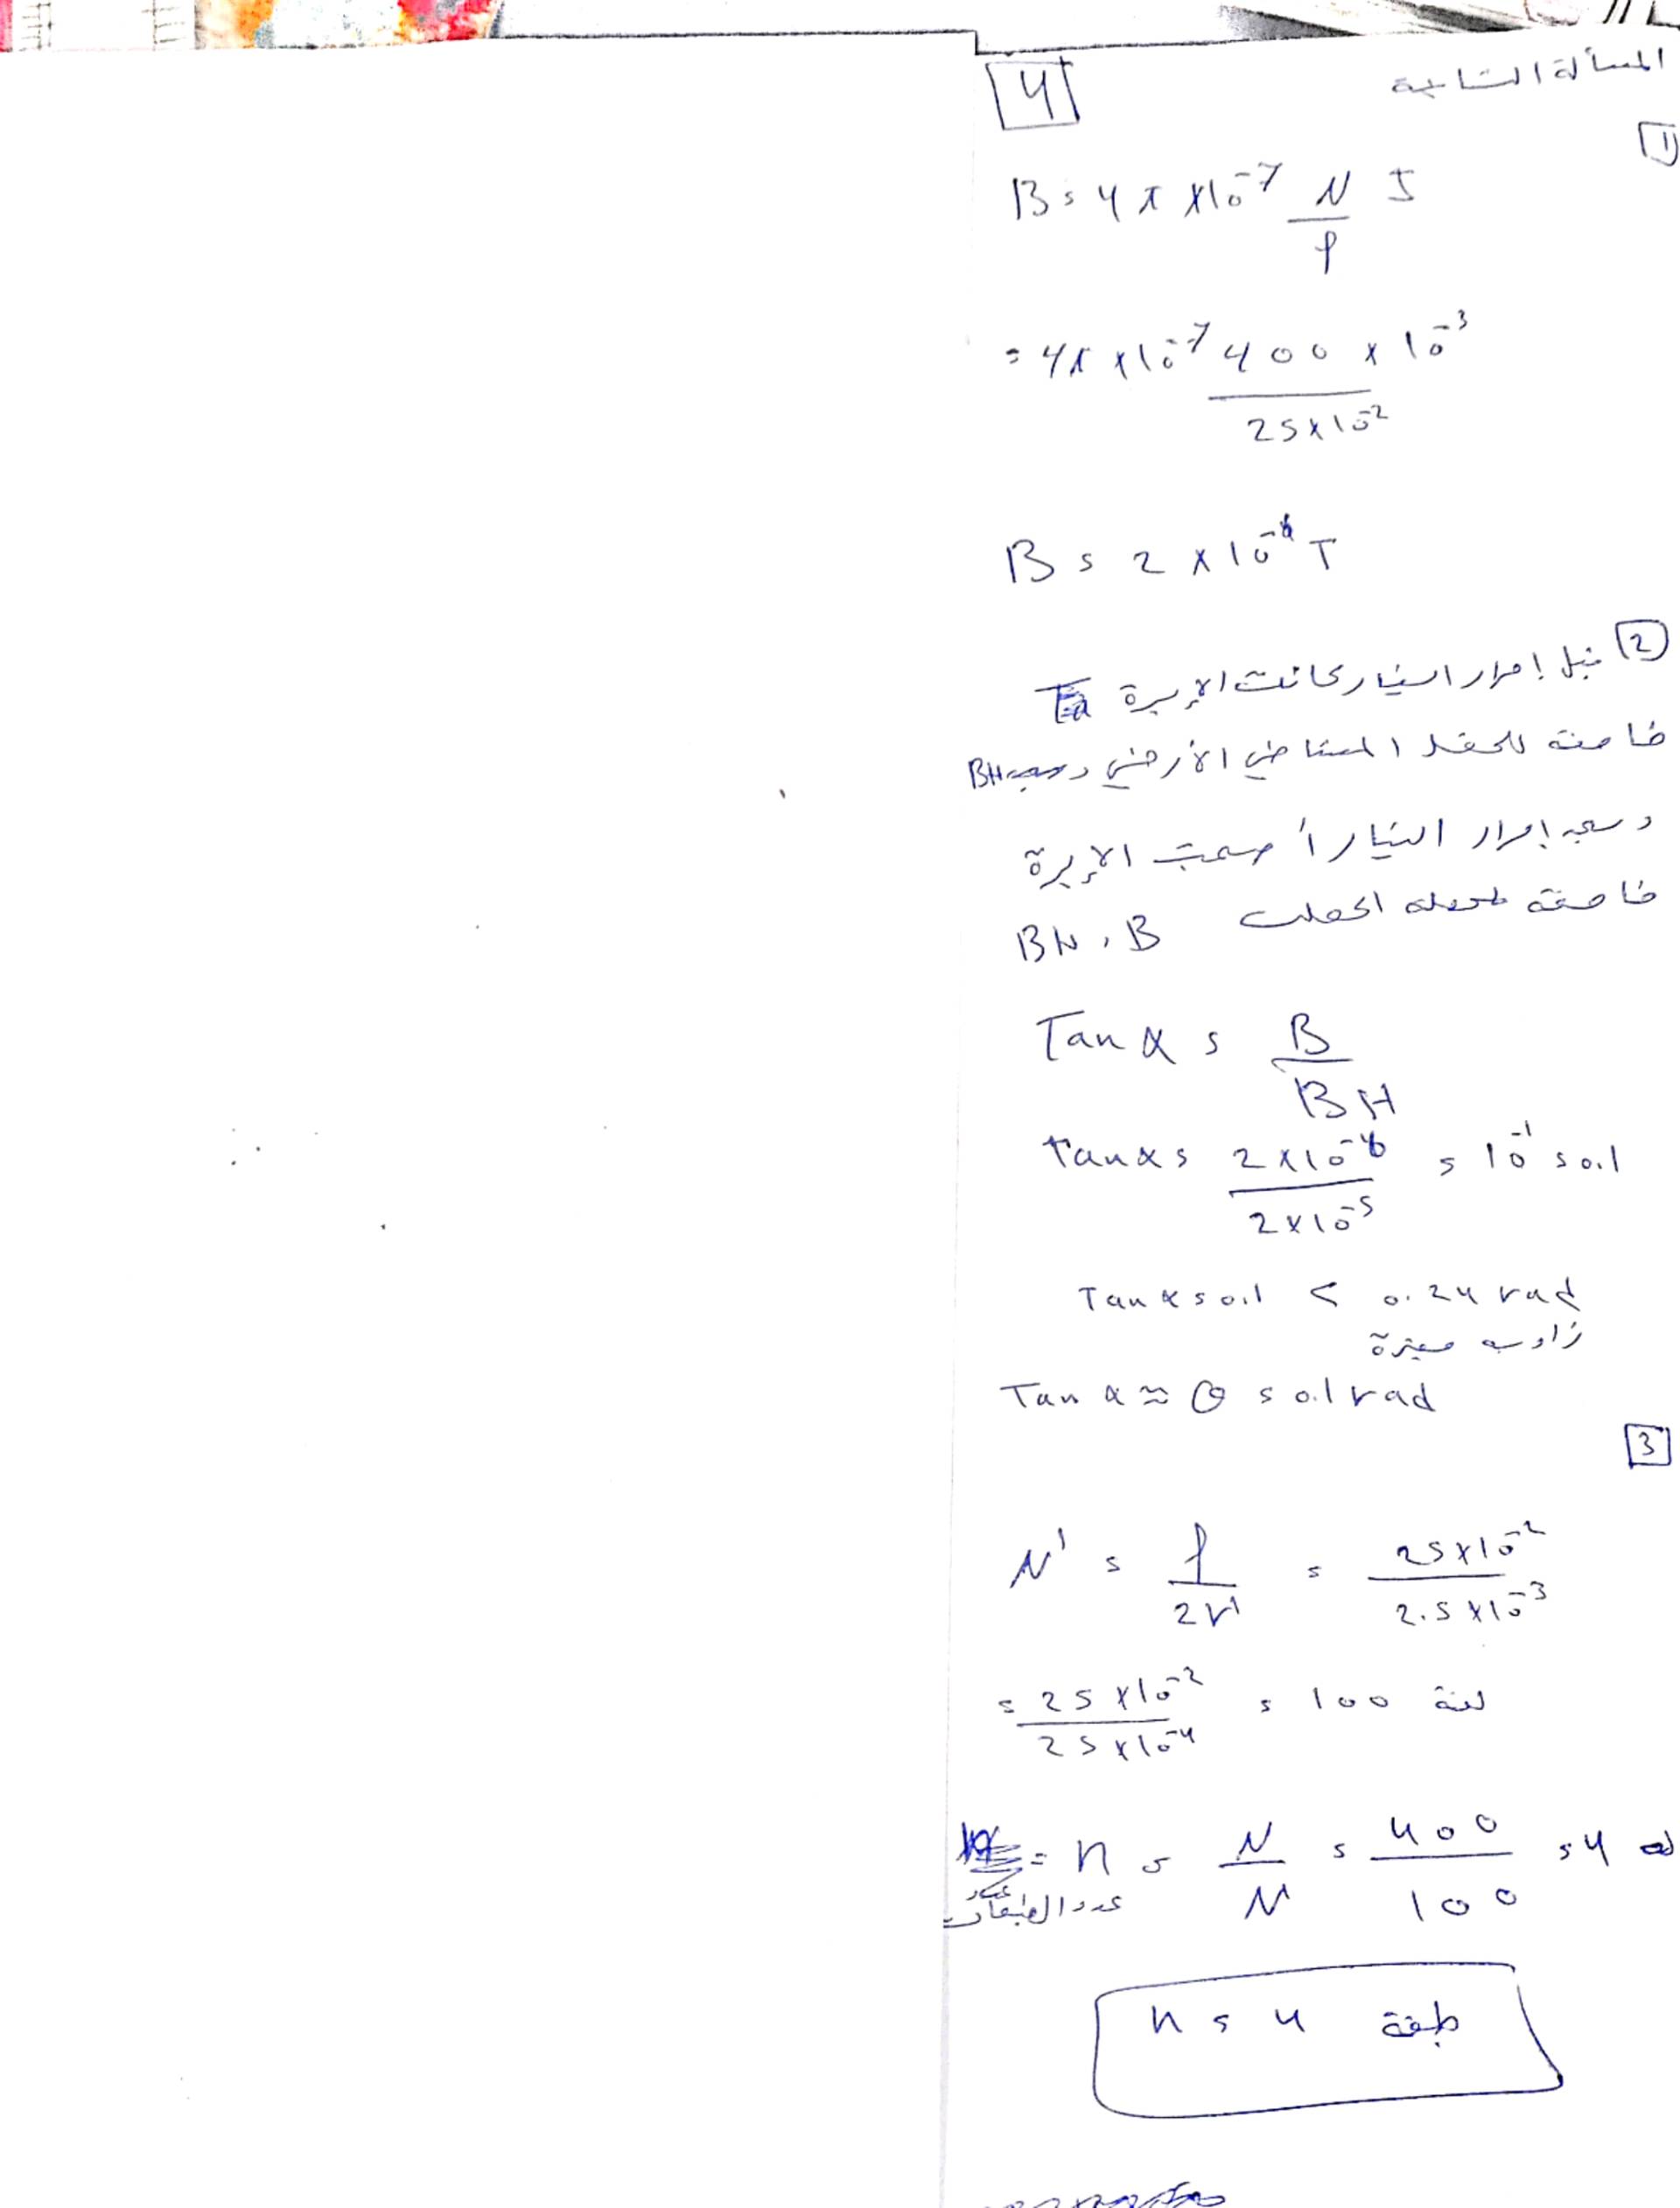 المسألة الثانية
4
1
B = 4π × 10^-7 N/ℓ I
= 4π × 10^-7 400 × 10^-3 / 25 × 10^-2
B = 2 × 10^-6 T
2 قبل إمرار التيار كانت الإبرة
خاضعة للحقل المغناطيسي الأرضي BH
وبعد إمرار التيار أصبحت الإبرة
خاضعة لمحصلة الحقلين BH , B
Tan α = B / BH
tan α = 2 × 10^-6 / 2 × 10^-5 = 10^-1 = 0.1
Tan α = 0.1 < 0.24 rad
زاوية صغيرة
Tan α ≈ θ = 0.1 rad
3
N' = ℓ / 2r' = 25 × 10^-2 / 2.5 × 10^-3
= 25 × 10^-2 / 25 × 10^-4 = 100 لفة
= n = N / N' = 400 / 100 = 4
عدد الطبقات
n = 4 طبقة